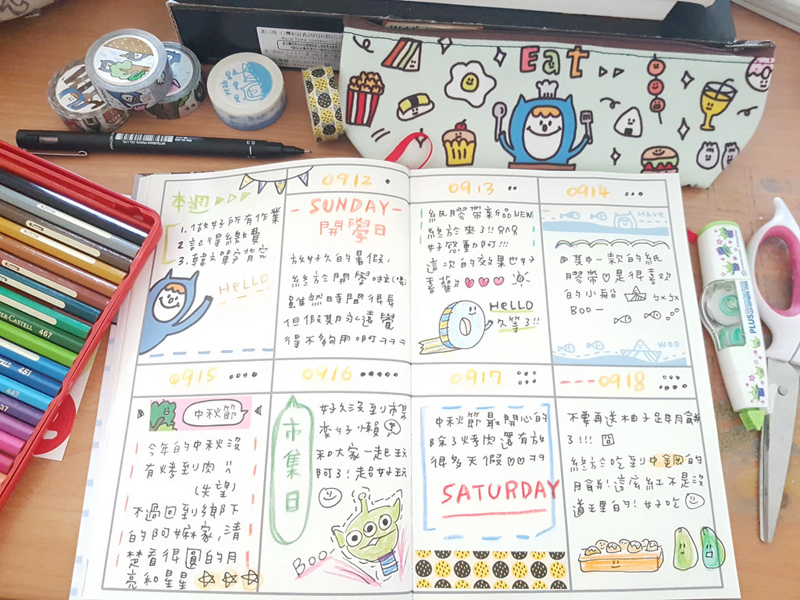 Eat
0.3
本週
1. 做好所有作業
2. 記得繳費
3. 韓文單字背完
HELLO
0912
-SUNDAY-
開學日
放好久的暑假,
終於開學
雖然時間很長
但假期永遠覺
得不夠用啊ㄱㄱㄱ
0913
紙膠帶新品NEW
終於來了!!
好感動阿!!!
這次的效果也好
喜歡
HELLO
久等了!!
0914
HAVE
其中一款的紙
膠帶♡是很喜歡
的小船
BOO-
WOO
0915
中秋節
今年的中秋沒
有烤到肉
(失望)
不過回到鄉下
的阿嬤家,清
楚看得圓的月
亮和星星
0916
市集日
好久沒到市場
變好懶
和大家一起玩
阿!超好玩
BOO-
0917
中秋節最開心的
除了烤肉還有放
得多天假
SATURDAY
0918
不要再送柚子跟月餅
了!!!
終於吃到中 的
月餅!這 紅不是沒
道理的!好吃
PLUS
467